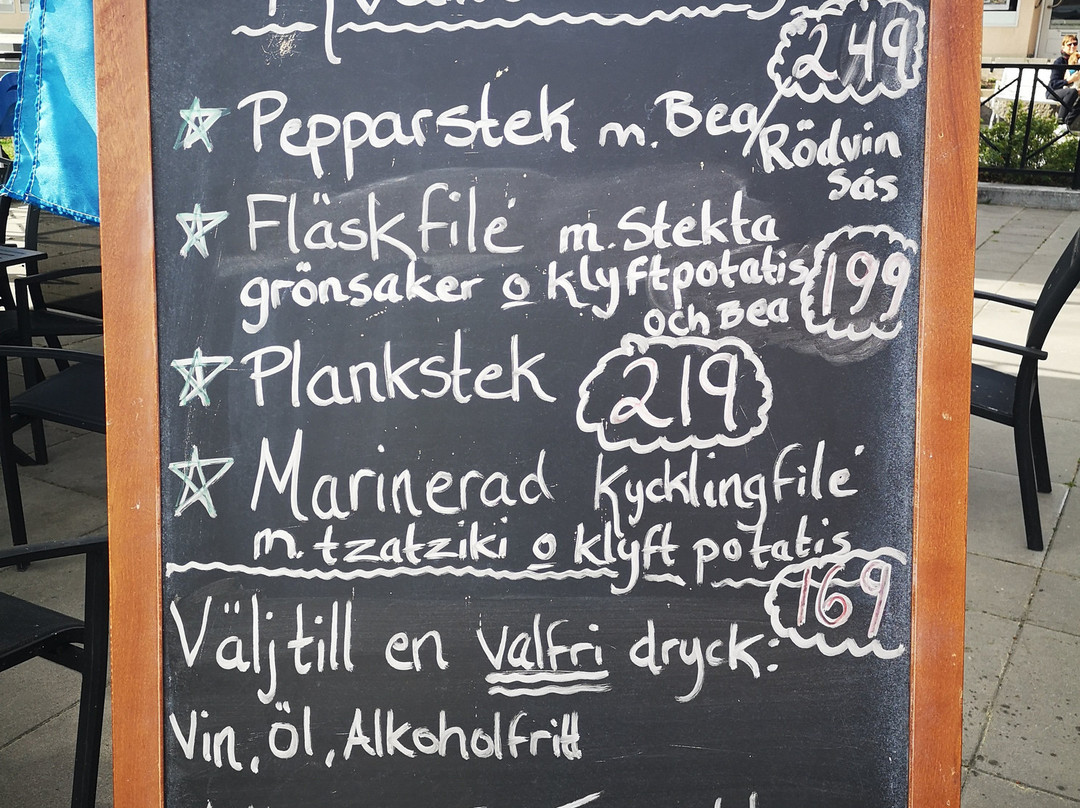 249
Pepparstek m. Bea/Rödvin
sås
Fläskfilé m. Stekta
grönsaker o klyftpotatis
och Bea 199
Plankstek 219
Marinerad Kycklingfilé
m. tzatziki o klyft potatis
169
Välj till en valfri dryck:
Vin, Öl, Alkoholfritt